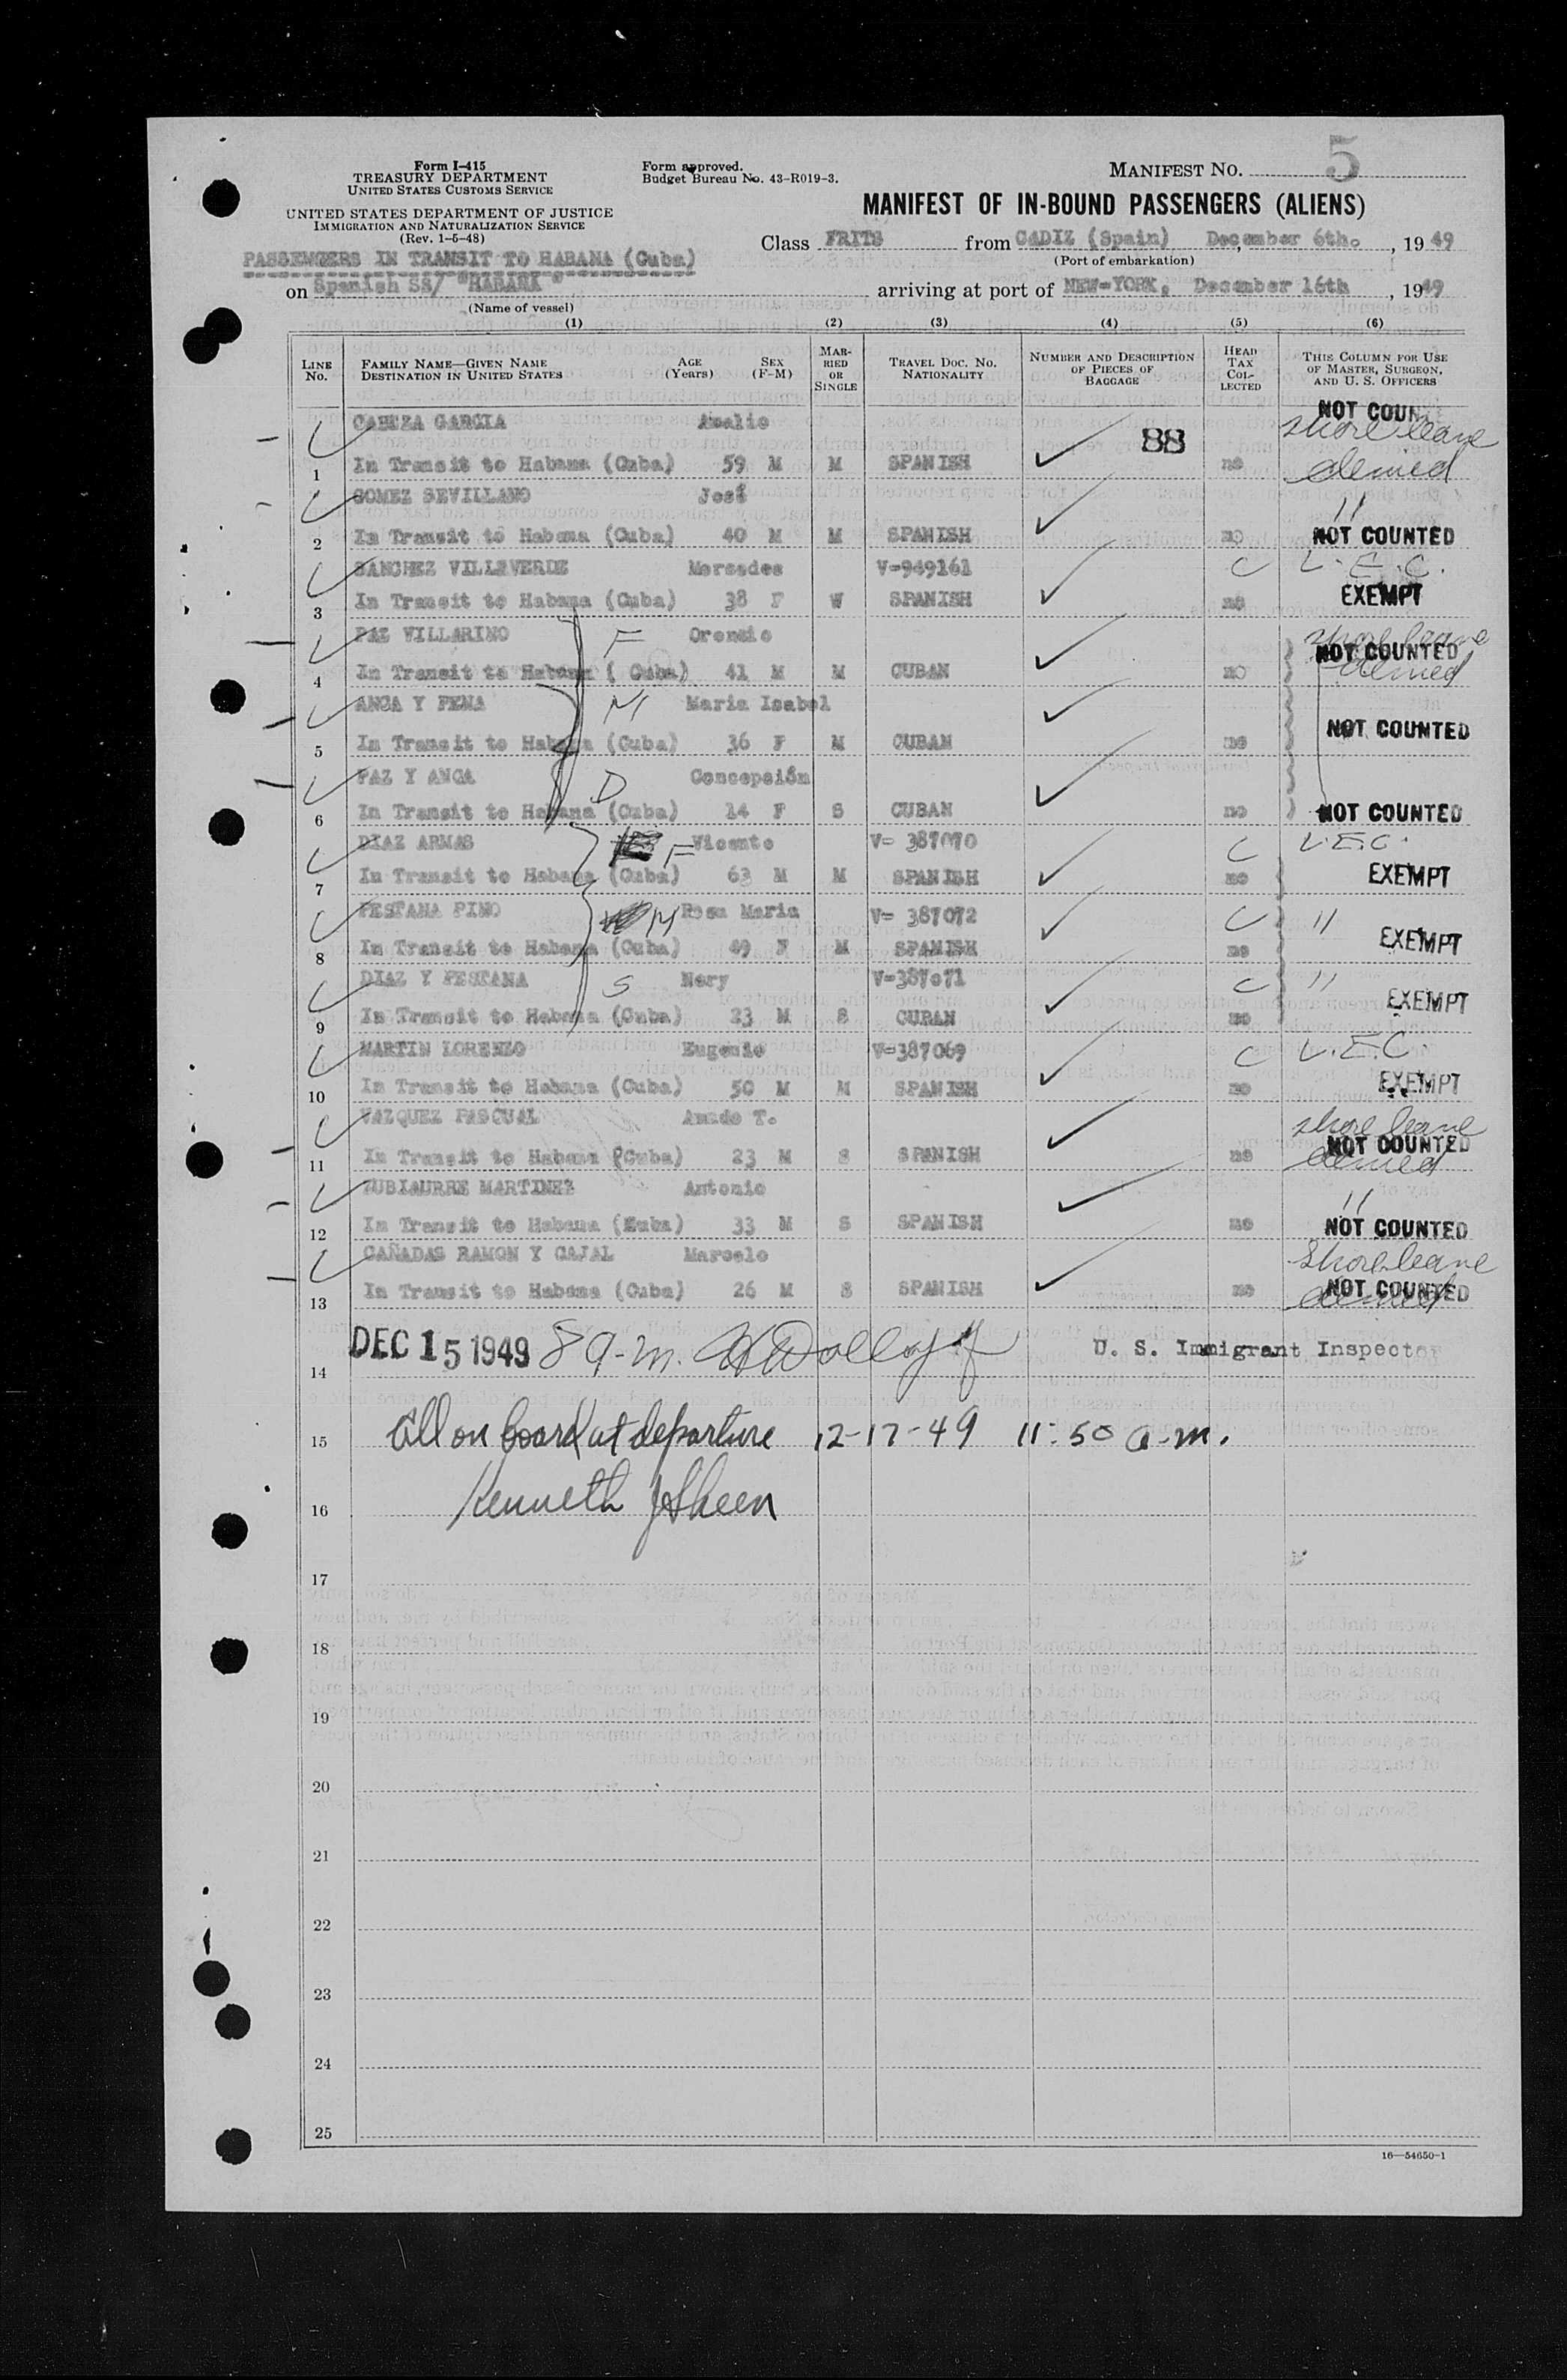 Form I-415
TREASURY DEPARTMENT
UNITED STATES CUSTOMS SERVICE
UNITED STATES DEPARTMENT OF JUSTICE
IMMIGRATION AND NATURALIZATION SERVICE
(Rev. 1-5-48)
Form approved.
Budget Bureau No. 43-R019-3.
MANIFEST NO. 5
MANIFEST OF IN-BOUND PASSENGERS (ALIENS)
Class FRITS from CADIZ (Spain) December 6th. , 1949
(Port of embarkation)
PASSENGERS IN TRANSIT TO HABANA (Cuba)
on Spanish SS/ "HABANA" arriving at port of NEW-YORK, December 16th , 1949
(Name of vessel)
(1) (2) (3) (4) (5) (6)
LINE No. FAMILY NAME—GIVEN NAME DESTINATION IN UNITED STATES AGE (Years) SEX (F-M) MARRIED OR SINGLE TRAVEL DOC. NO. NATIONALITY NUMBER AND DESCRIPTION OF PIECES OF BAGGAGE HEAD TAX COLLECTED THIS COLUMN FOR USE OF MASTER, SURGEON, AND U. S. OFFICERS
CABEZA GARCIA 88 NOT COUN shore leave
1 In Transit to Habana (Cuba) 59 M M SPANISH no denied
GOMEZ SEVILLANO José "
2 In Transit to Habana (Cuba) 40 M M SPANISH no NOT COUNTED
SANCHEZ VILLAVERDE Mercedes V-949161 C L.E.C.
3 In Transit to Habana (Cuba) 38 F W SPANISH no EXEMPT
PAZ VILLARINO F Orencio shore leave
4 In Transit to Habana ( Cuba) 41 M M CUBAN no NOT COUNTED denied
ANCA Y PENA M Maria Isabel
5 In Transit to Habana (Cuba) 36 F M CUBAN no NOT COUNTED
PAZ Y ANCA D Concepsión
6 In Transit to Habana (Cuba) 14 F S CUBAN no NOT COUNTED
DIAZ ARMAS F Vicente V- 387070 C L.E.C.
7 In Transit to Habana (Cuba) 63 M M SPANISH no EXEMPT
PESTANA PINO M Rosa Maria V- 387072 C "
8 In Transit to Habana (Cuba) 49 F M SPANISH no EXEMPT
DIAZ Y PESTANA S Nery V-387071 C "
9 In Transit to Habana (Cuba) 23 M S CUBAN no EXEMPT
MARTIN LORENZO Eugenio V-387069 C L.E.C.
10 In Transit to Habana (Cuba) 50 M M SPANISH no EXEMPT
VAZQUEZ PASCUAL Amado T. shore leave
11 In Transit to Habana (Cuba) 23 M S SPANISH no NOT COUNTED denied
ZUBIAURRE MARTINEZ Antonio "
12 In Transit to Habana (Kuba) 33 M S SPANISH no NOT COUNTED
CAÑADAS RAMON Y CAJAL Marcelo Shore leave
13 In Transit to Habana (Cuba) 26 M S SPANISH no NOT COUNTED denied
14 DEC 15 1949 8 a-m. U. S. Immigrant Inspector
15 All on board at departure 12-17-49 11:50 a-m.
16 Kenneth J Sheen
17
18
19
20
21
22
23
24
25
16—54650-1